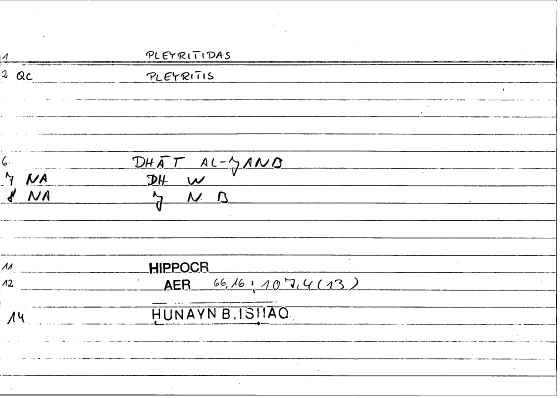 1 PLEYRITIDAS
2 QC PLEYRITIS
6. DHĀT AL-ǧANB
7 NA DH W
8 NA ǧ N B
11 HIPPOCR
12 AER 66,16 : 107,4 (13)
14 ḤUNAYN B. ISḤĀQ